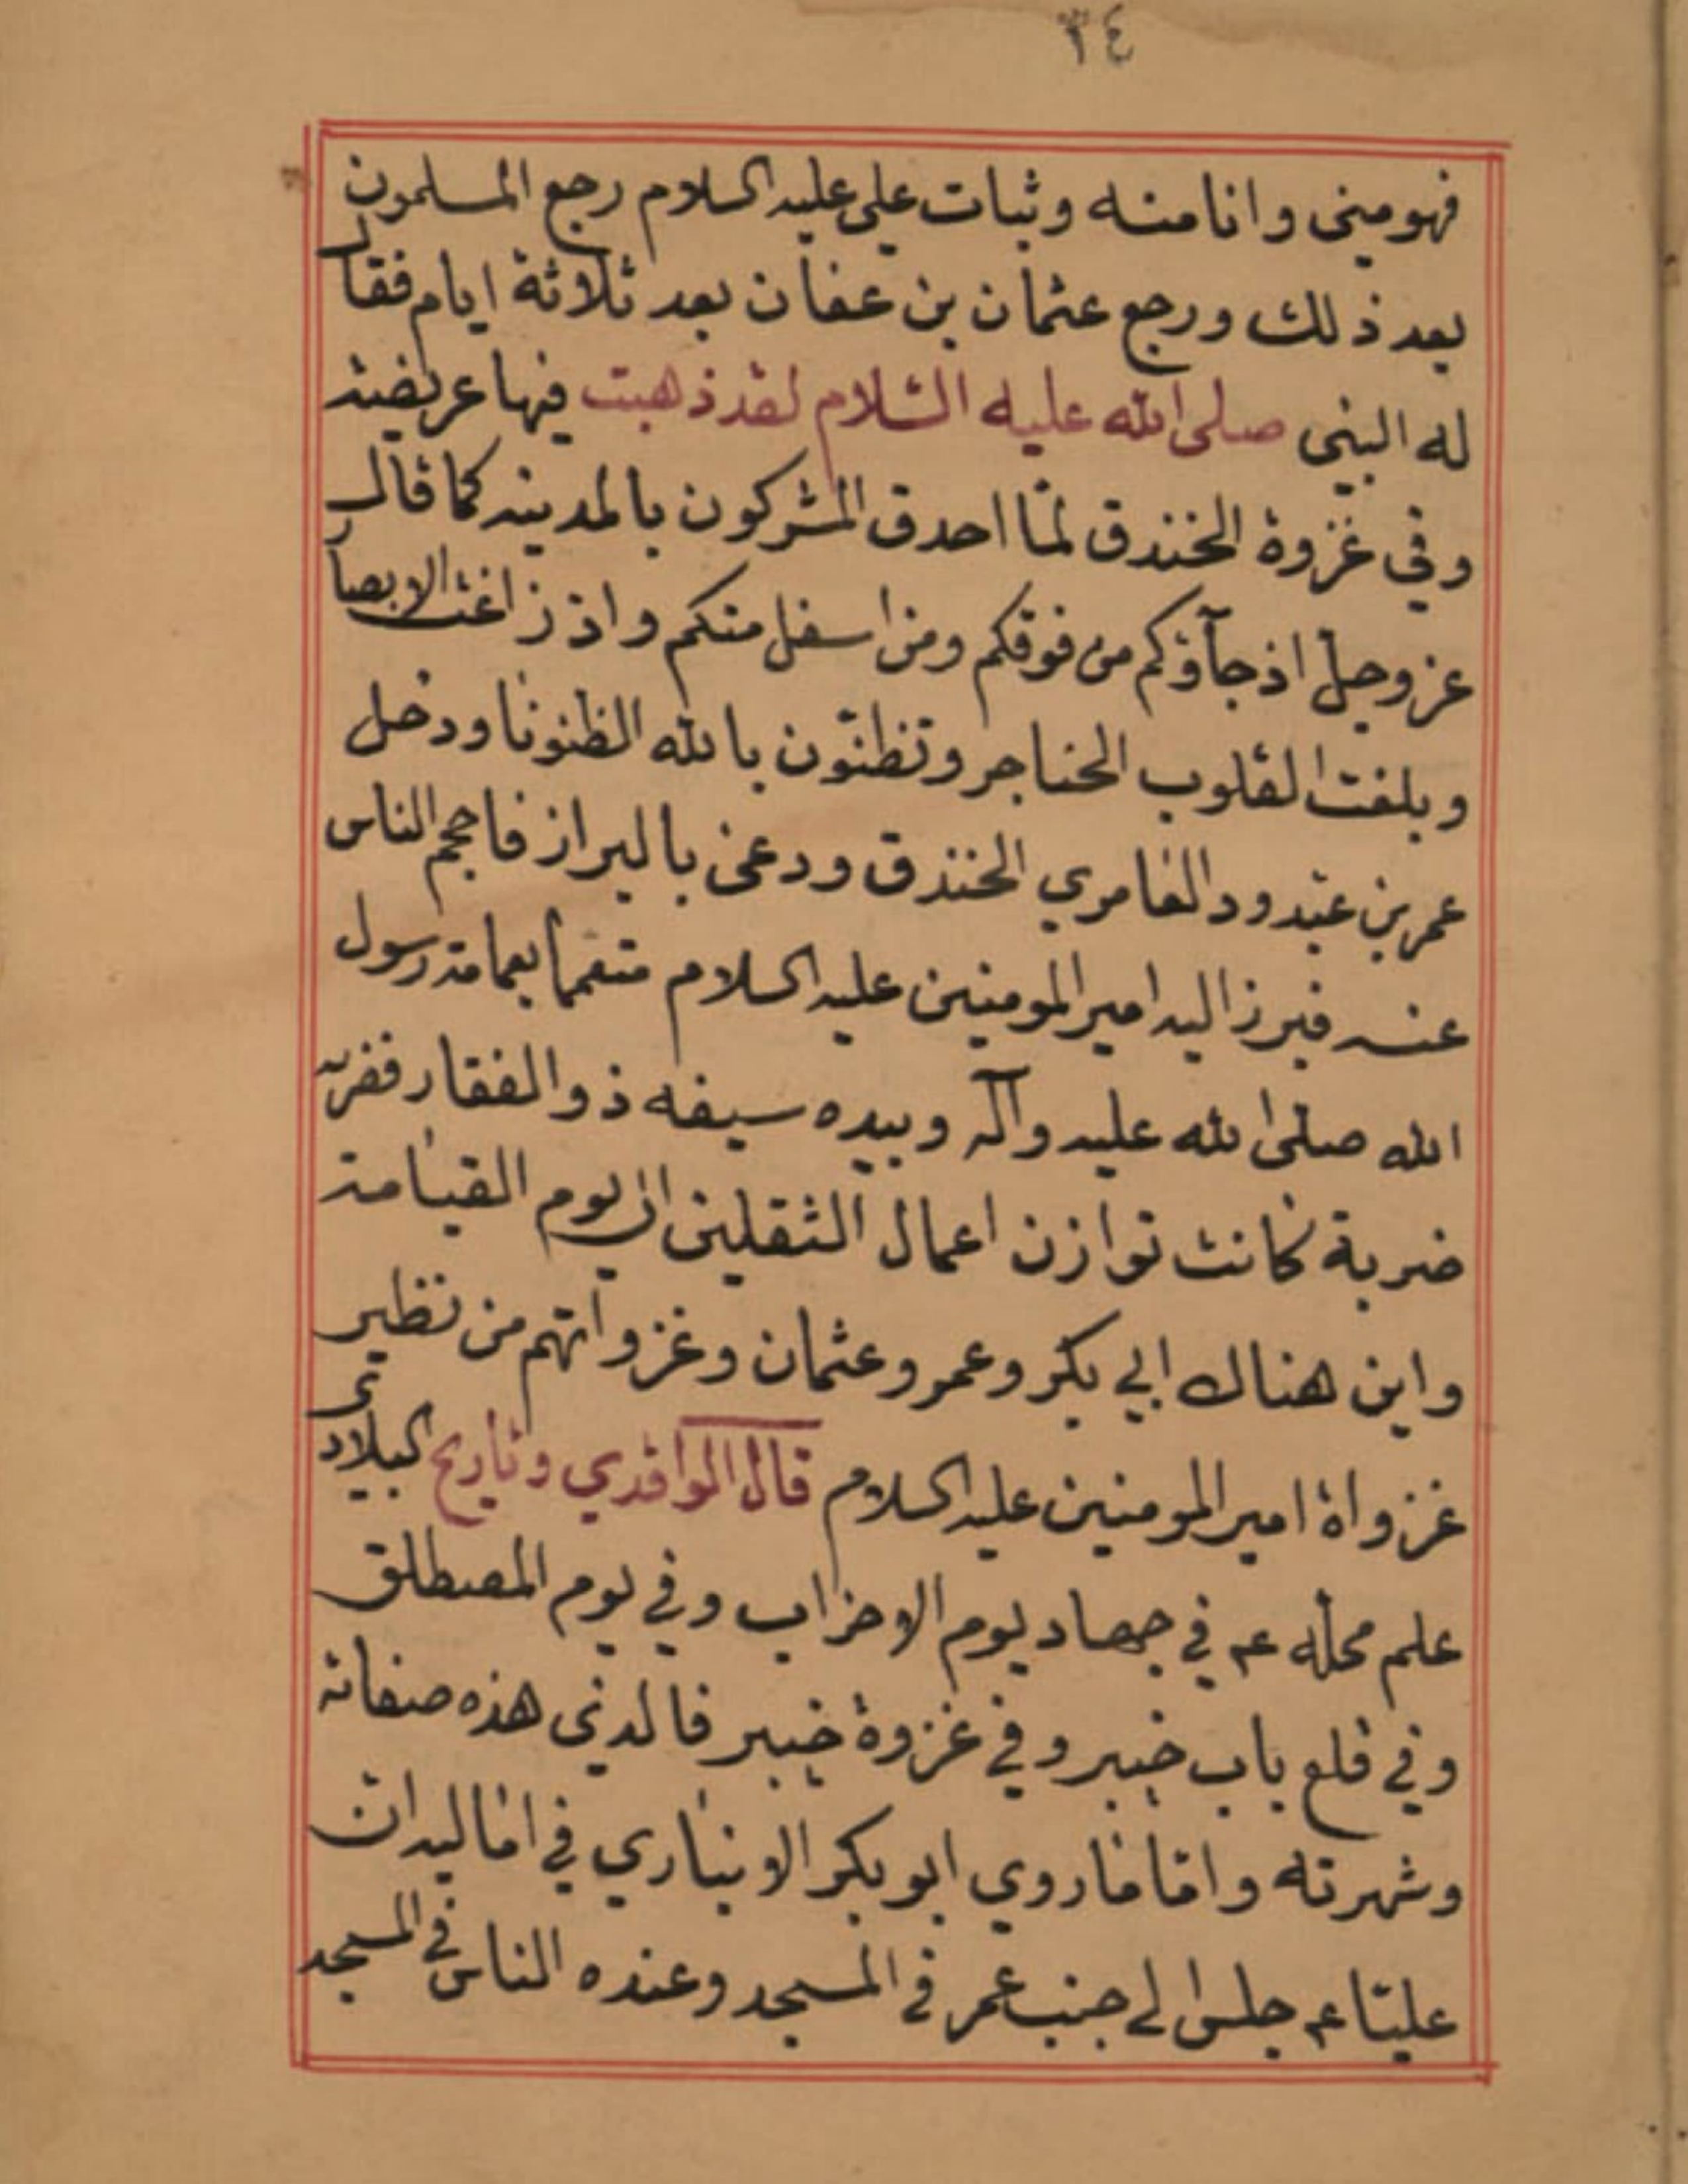 ٣٤
فهو مني وانا منه وثبات علي عليه السلام رجع المسلمون
بعد ذلك ورجع عثمان بن عفان بعد ثلاثة ايام فقال
له النبي صلى الله عليه السلام لقد ذهبت فيها عريضة
وفي غزوة الخندق لمّا احدق المشركون بالمدينه كما قال
عز وجل اذ جآؤكم من فوقكم ومن اسفل منكم واذ زاغت الابصار
وبلغت القلوب الحناجر وتظنّون بالله الظنونا ودخل
عمر بن عبد ود العامري الخندق ودعى بالبراز فاحجم الناس
عنه فبرز اليه امير المومنين عليه السلام متعمما بعمامة رسول
الله صلى الله عليه وآله وبيده سيفه ذو الفقار فضربه
ضربة كانت توازن اعمال الثقلين الى يوم القيامة
واين هناك ابي بكر وعمر وعثمان وغزواتهم من نظير
غزواة امير المومنين عليه السلام قال الواقدي وتاريخ البلاذري
علم محله عم في جهاد يوم الاحزاب وفي يوم المصطلق
وفي قلع باب خيبر وفي غزوة خيبر فالذي هذه صفاته
وشهرته وامّا ما روي ابو بكر الانباري في اماليه ان
عليّا عم جلس الى جنب عمر في المسجد وعنده الناس في المسجد